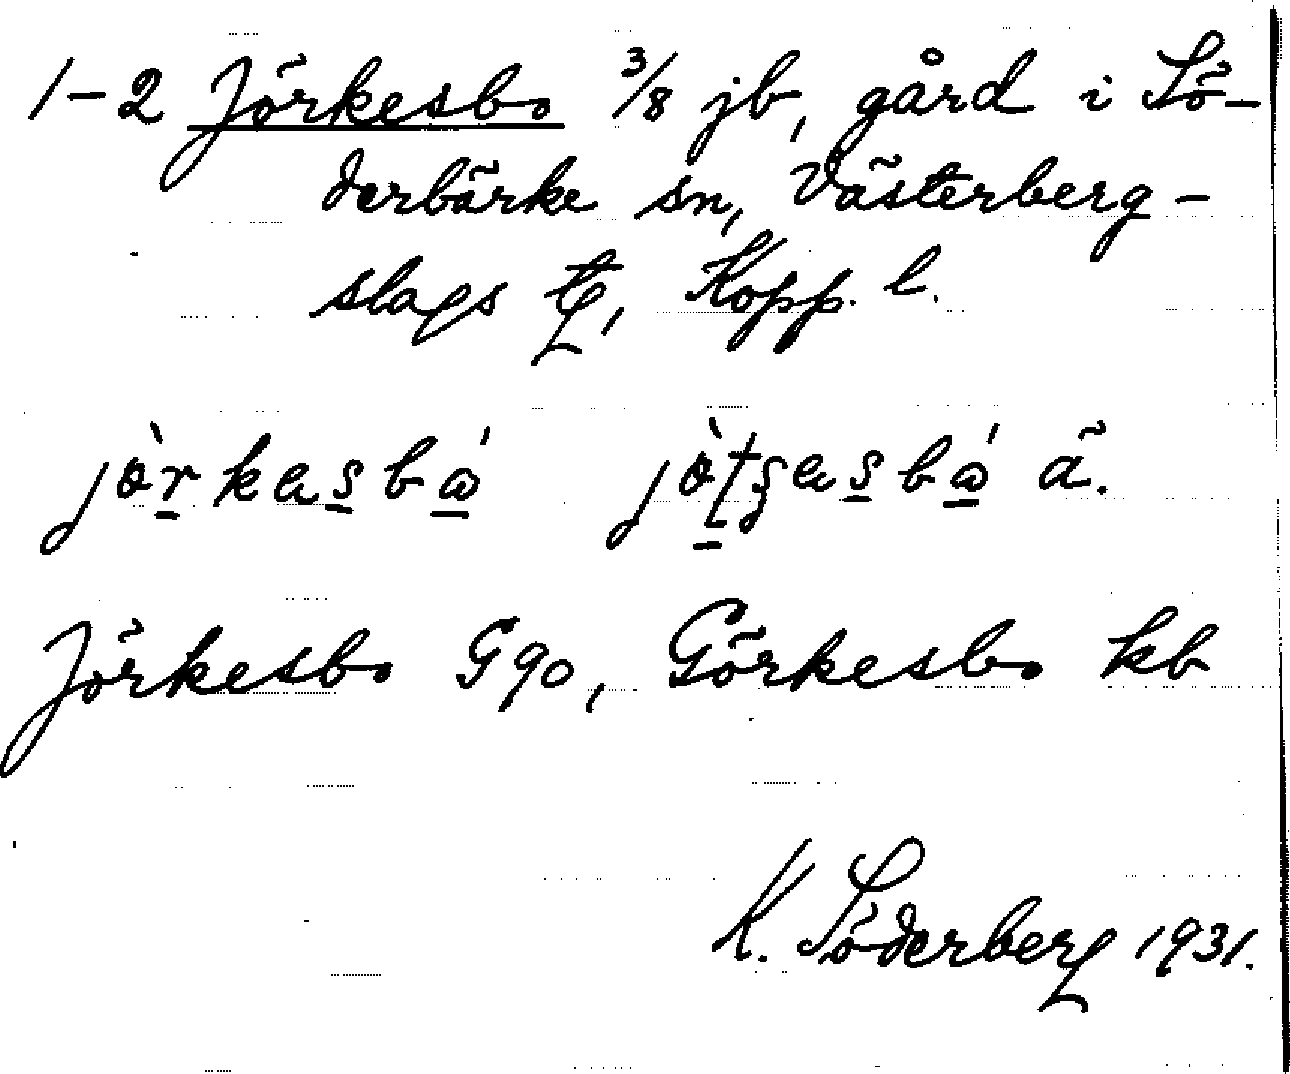 1-2 Jörkesbo 3/8 jb, gård i Sö-
derbärke sn, Västerberg-
slags tg, Kopp. l.
ä.
Jörkesbo G90, Görkesbo kb
K. Söderberg 1931.